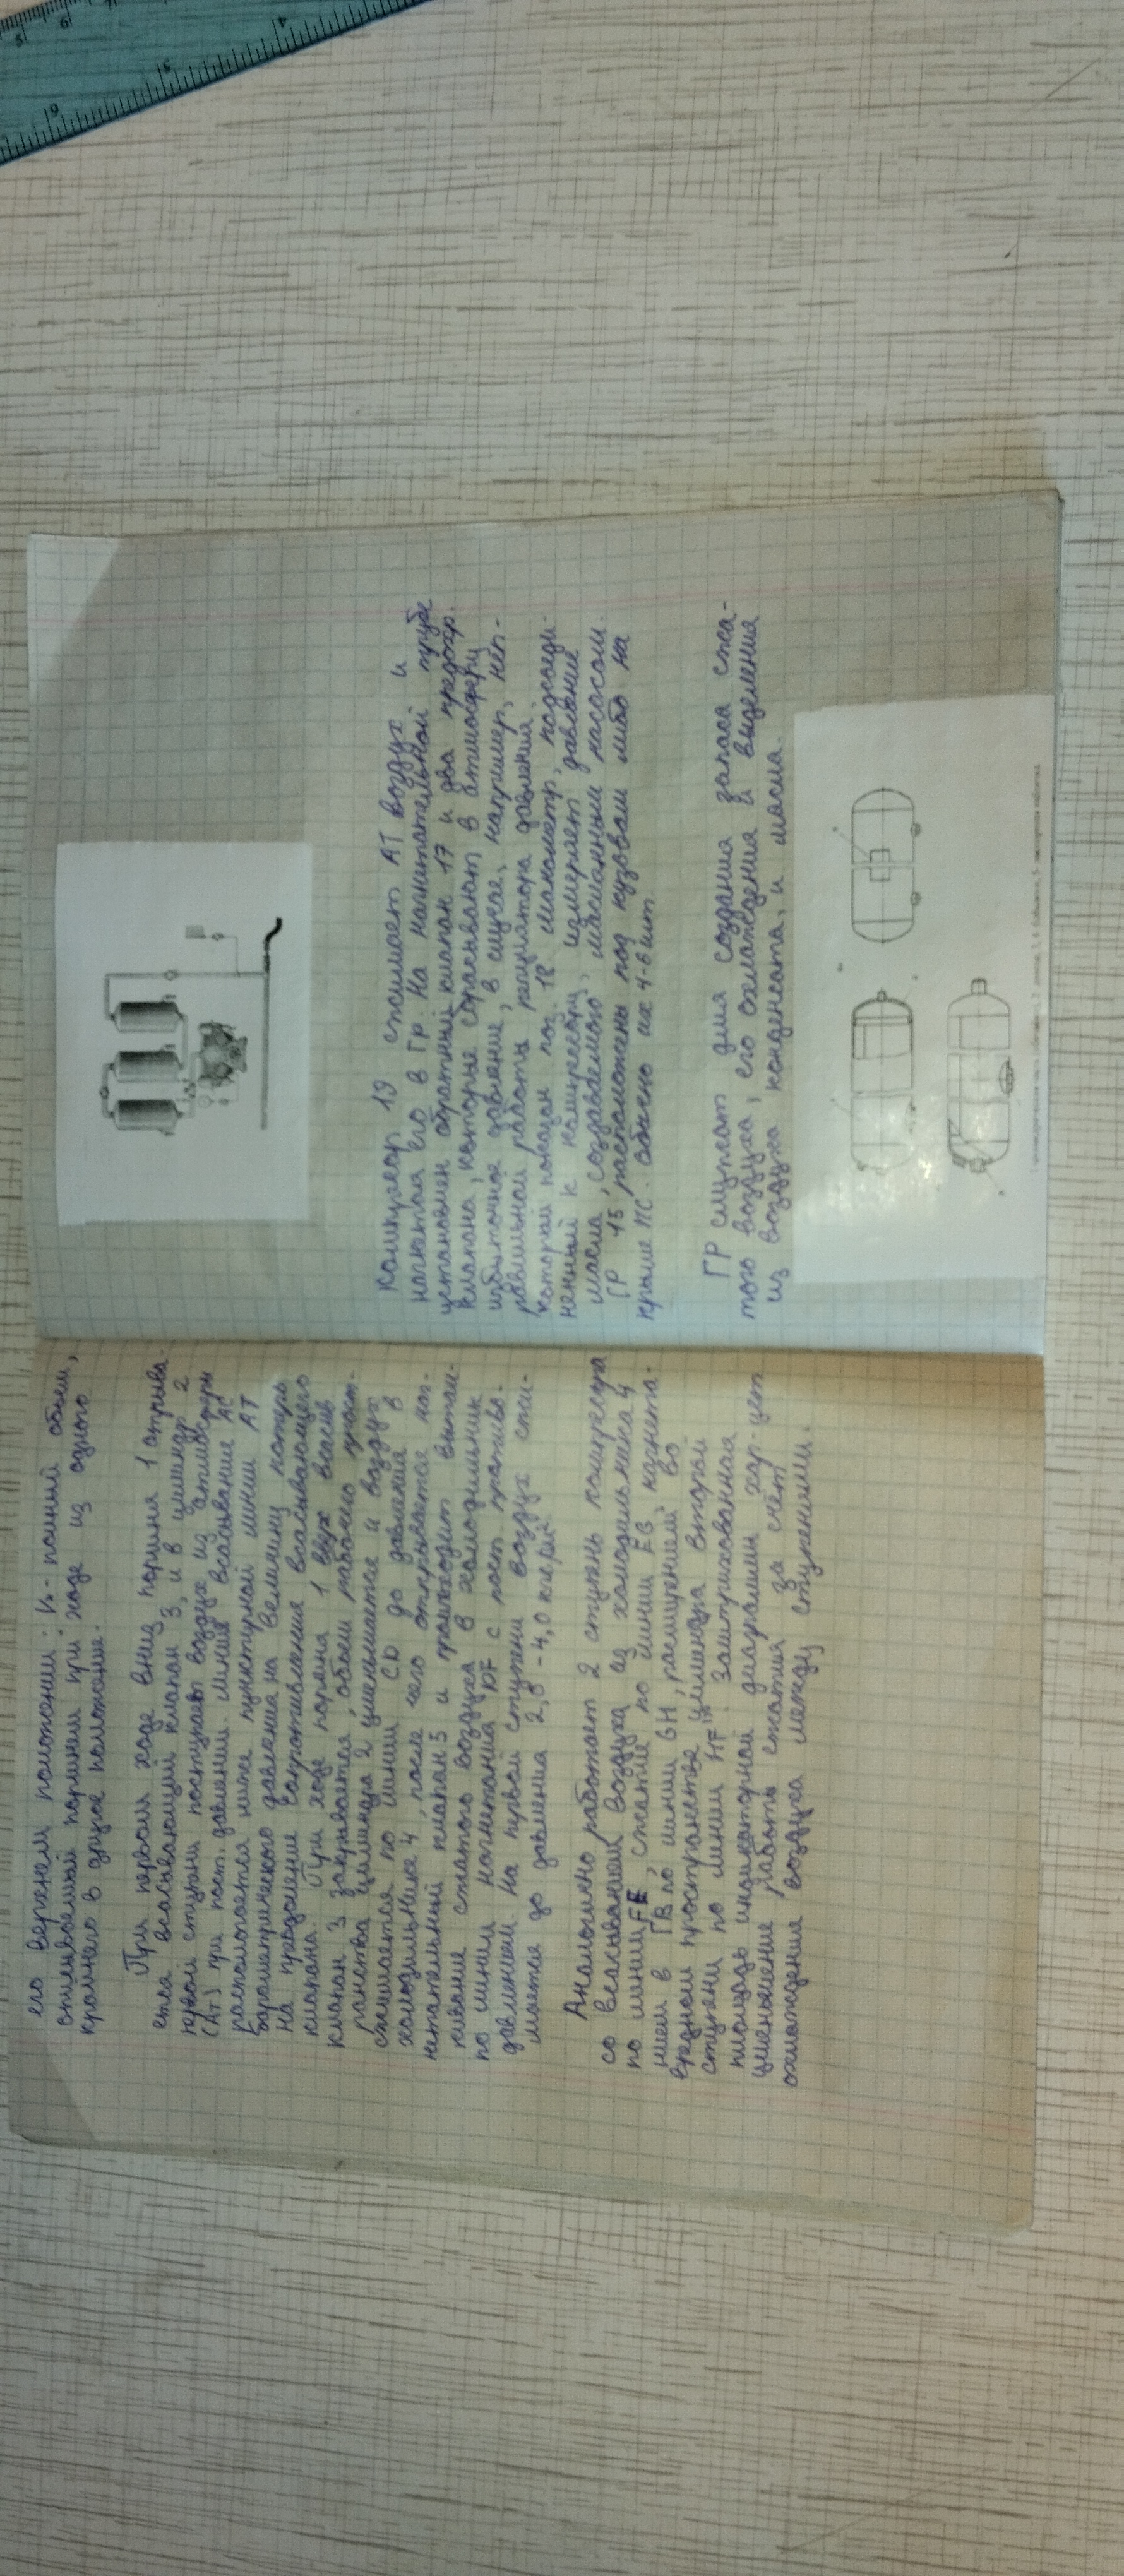 его верхнем положении: Vк - полный объем,
описываемый поршнем при ходе из одного
крайнего в другое положение.
При первом ходе вниз поршня 1 открыва-
ется всасывающий клапан 3, и в цилиндр 2
первой ступени поступает воздух из атмосферы
(Ат) при пост. давлении. Линия всасывания АС
располагается ниже пунктирной линии АТ
барометрического давления на величину потерь
на преодоление сопротивления всасывающего
клапана. При ходе поршня 1 вверх всасыв
клапан 3 закрывается, объем рабочего прост-
ранства цилиндра 2 уменьшается и воздух
сжимается по линии CD до давления в
холодильнике 4, после чего открывается наг-
нетательный клапан 5 и происходит вытал-
кивание сжатого воздуха в холодильник
по линии нагнетания DF с пост. противо.
давлением. На первой ступени воздух сжи-
мается до давления 2,0 - 4,0
Аналогично работает 2 ступень компрессора
со всасыванием воздуха из холодильника 4
по линии FE, сжатие по линии EB нагнета-
нием в ГВ по линии BH, расширением во
вредном пространстве цилиндра второй
ступени по линии HF. Заштрихованная
площадь индикаторной диаграммы хар-ует
уменьшение работы сжатия за счёт
охлаждения воздуха между ступенями.
Компрессор 19 сжимает АТ воздух и
нагнетая его в ГР. На нагнетательной трубе
установлен обратный клапан 17 и два предохр.
клапана, которые сбрасывают в атмосферу
избыточное давление, в случае, например, неп-
равильной работы регулятора давления
который показан поз. 18. Манометр, подсоеди-
ненный к компрессору, измеряет давление
масла, создаваемого масляным насосом.
ГР 15 расположены под кузовом либо на
крыше ПС. обычно их 4-6 шт
ГР служат для создания запаса сжа-
того воздуха, его охлаждения и выделения
из воздуха конденсата, и масла.